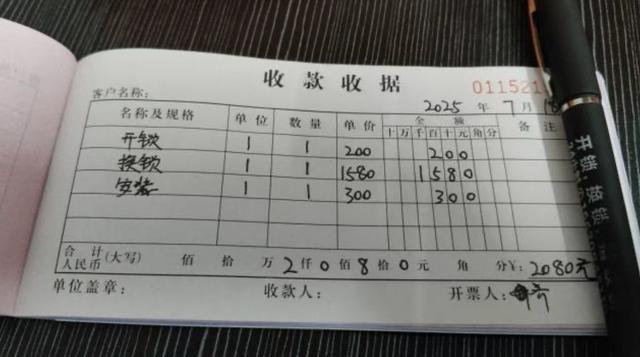 收款收据
011521
客户名称：
2025 年 7 月 18
名称及规格 单位 数量 单价 金额 备注
十万千百十元角分
开锁 1 1 200 200
换锁 1 1 1580 1580
安装 1 1 300 300
合计人民币(大写) 佰 拾 万 2 仟 0 佰 8 拾 0 元 角 分 ¥：2080元
单位盖章： 收款人： 开票人：
开锁 换锁